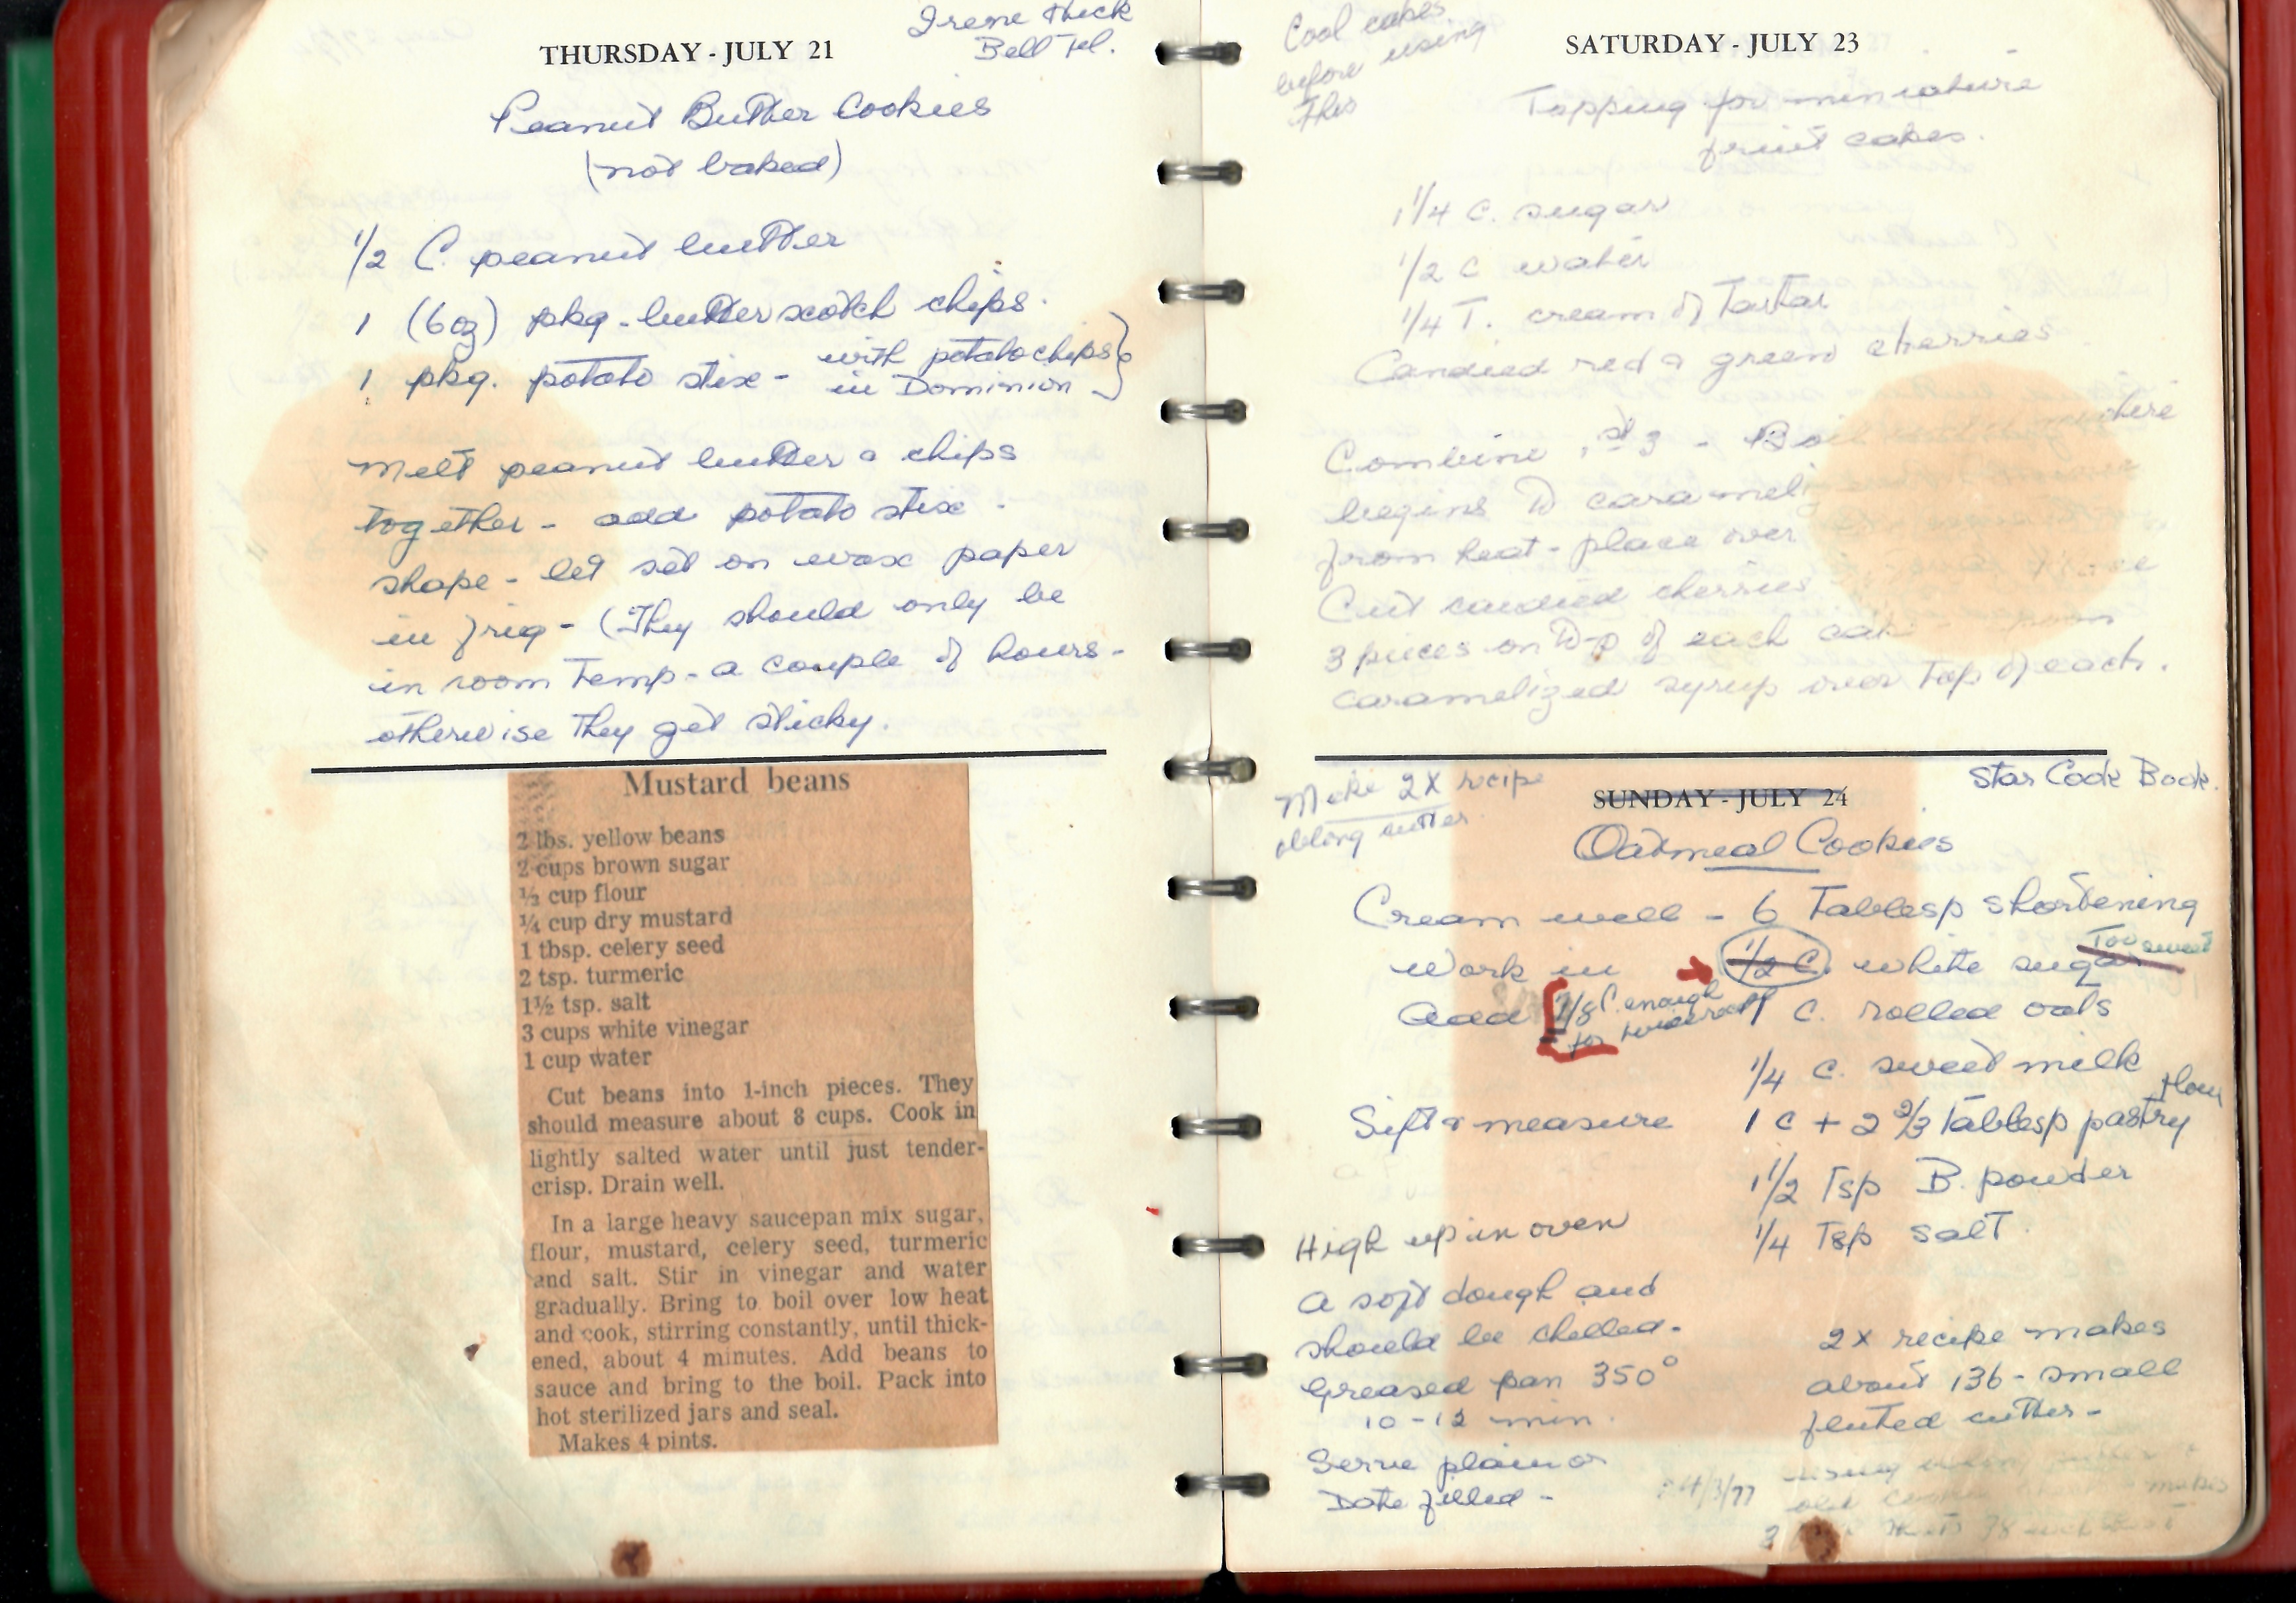 Irene Thick
Bell Tel.
THURSDAY - JULY 21
Peanut Butter Cookies
(not baked)
1/2 C. peanut butter
1 (6oz) pkg - butterscotch chips.
1 pkg. potato stix - with potato chips
in Dominion
Melt peanut butter & chips
together - add potato stix -
shape - let set on wax paper
in frig - (They should only be
in room Temp - a couple of hours -
otherwise They get sticky.
Mustard beans
2 lbs. yellow beans
2 cups brown sugar
½ cup flour
¼ cup dry mustard
1 tbsp. celery seed
2 tsp. turmeric
1½ tsp. salt
3 cups white vinegar
1 cup water
Cut beans into 1-inch pieces. They
should measure about 8 cups. Cook in
lightly salted water until just tender-
crisp. Drain well.
In a large heavy saucepan mix sugar,
flour, mustard, celery seed, turmeric
and salt. Stir in vinegar and water
gradually. Bring to boil over low heat
and cook, stirring constantly, until thick-
ened, about 4 minutes. Add beans to
sauce and bring to the boil. Pack into
hot sterilized jars and seal.
Makes 4 pints.
Cool cakes
before using
This
SATURDAY - JULY 23
Topping for miniature
fruit cakes.
1 1/4 C. sugar
1/2 C water
1/4 T. cream of Tartar
Candied red & green cherries
Combine 1st 3 - Boil
begins to
from heat - place over
Cut candied cherries
3 pieces on Top of each
caramelized syrup over Top of each.
Make 2X recipe
oblong cutter
SUNDAY - JULY 24
Star Cook Book.
Oatmeal Cookies
Cream well - 6 Tablesp shortening
Work in 1/2 C. white sugar Too sweet
Add 1 C. rolled oats
C. enough
for
1/4 C. sweet milk
Sift & measure 1 C + 2 2/3 Tablesp pastry flour
1 1/2 Tsp B. powder
1/4 Tsp salt
High up in oven
a soft dough and
should be chilled -
Greased pan 350°
10-12 min.
Serve plain or
Date filled -
2X recipe makes
about 136 - small
fluted cutter -
/3/77
makes